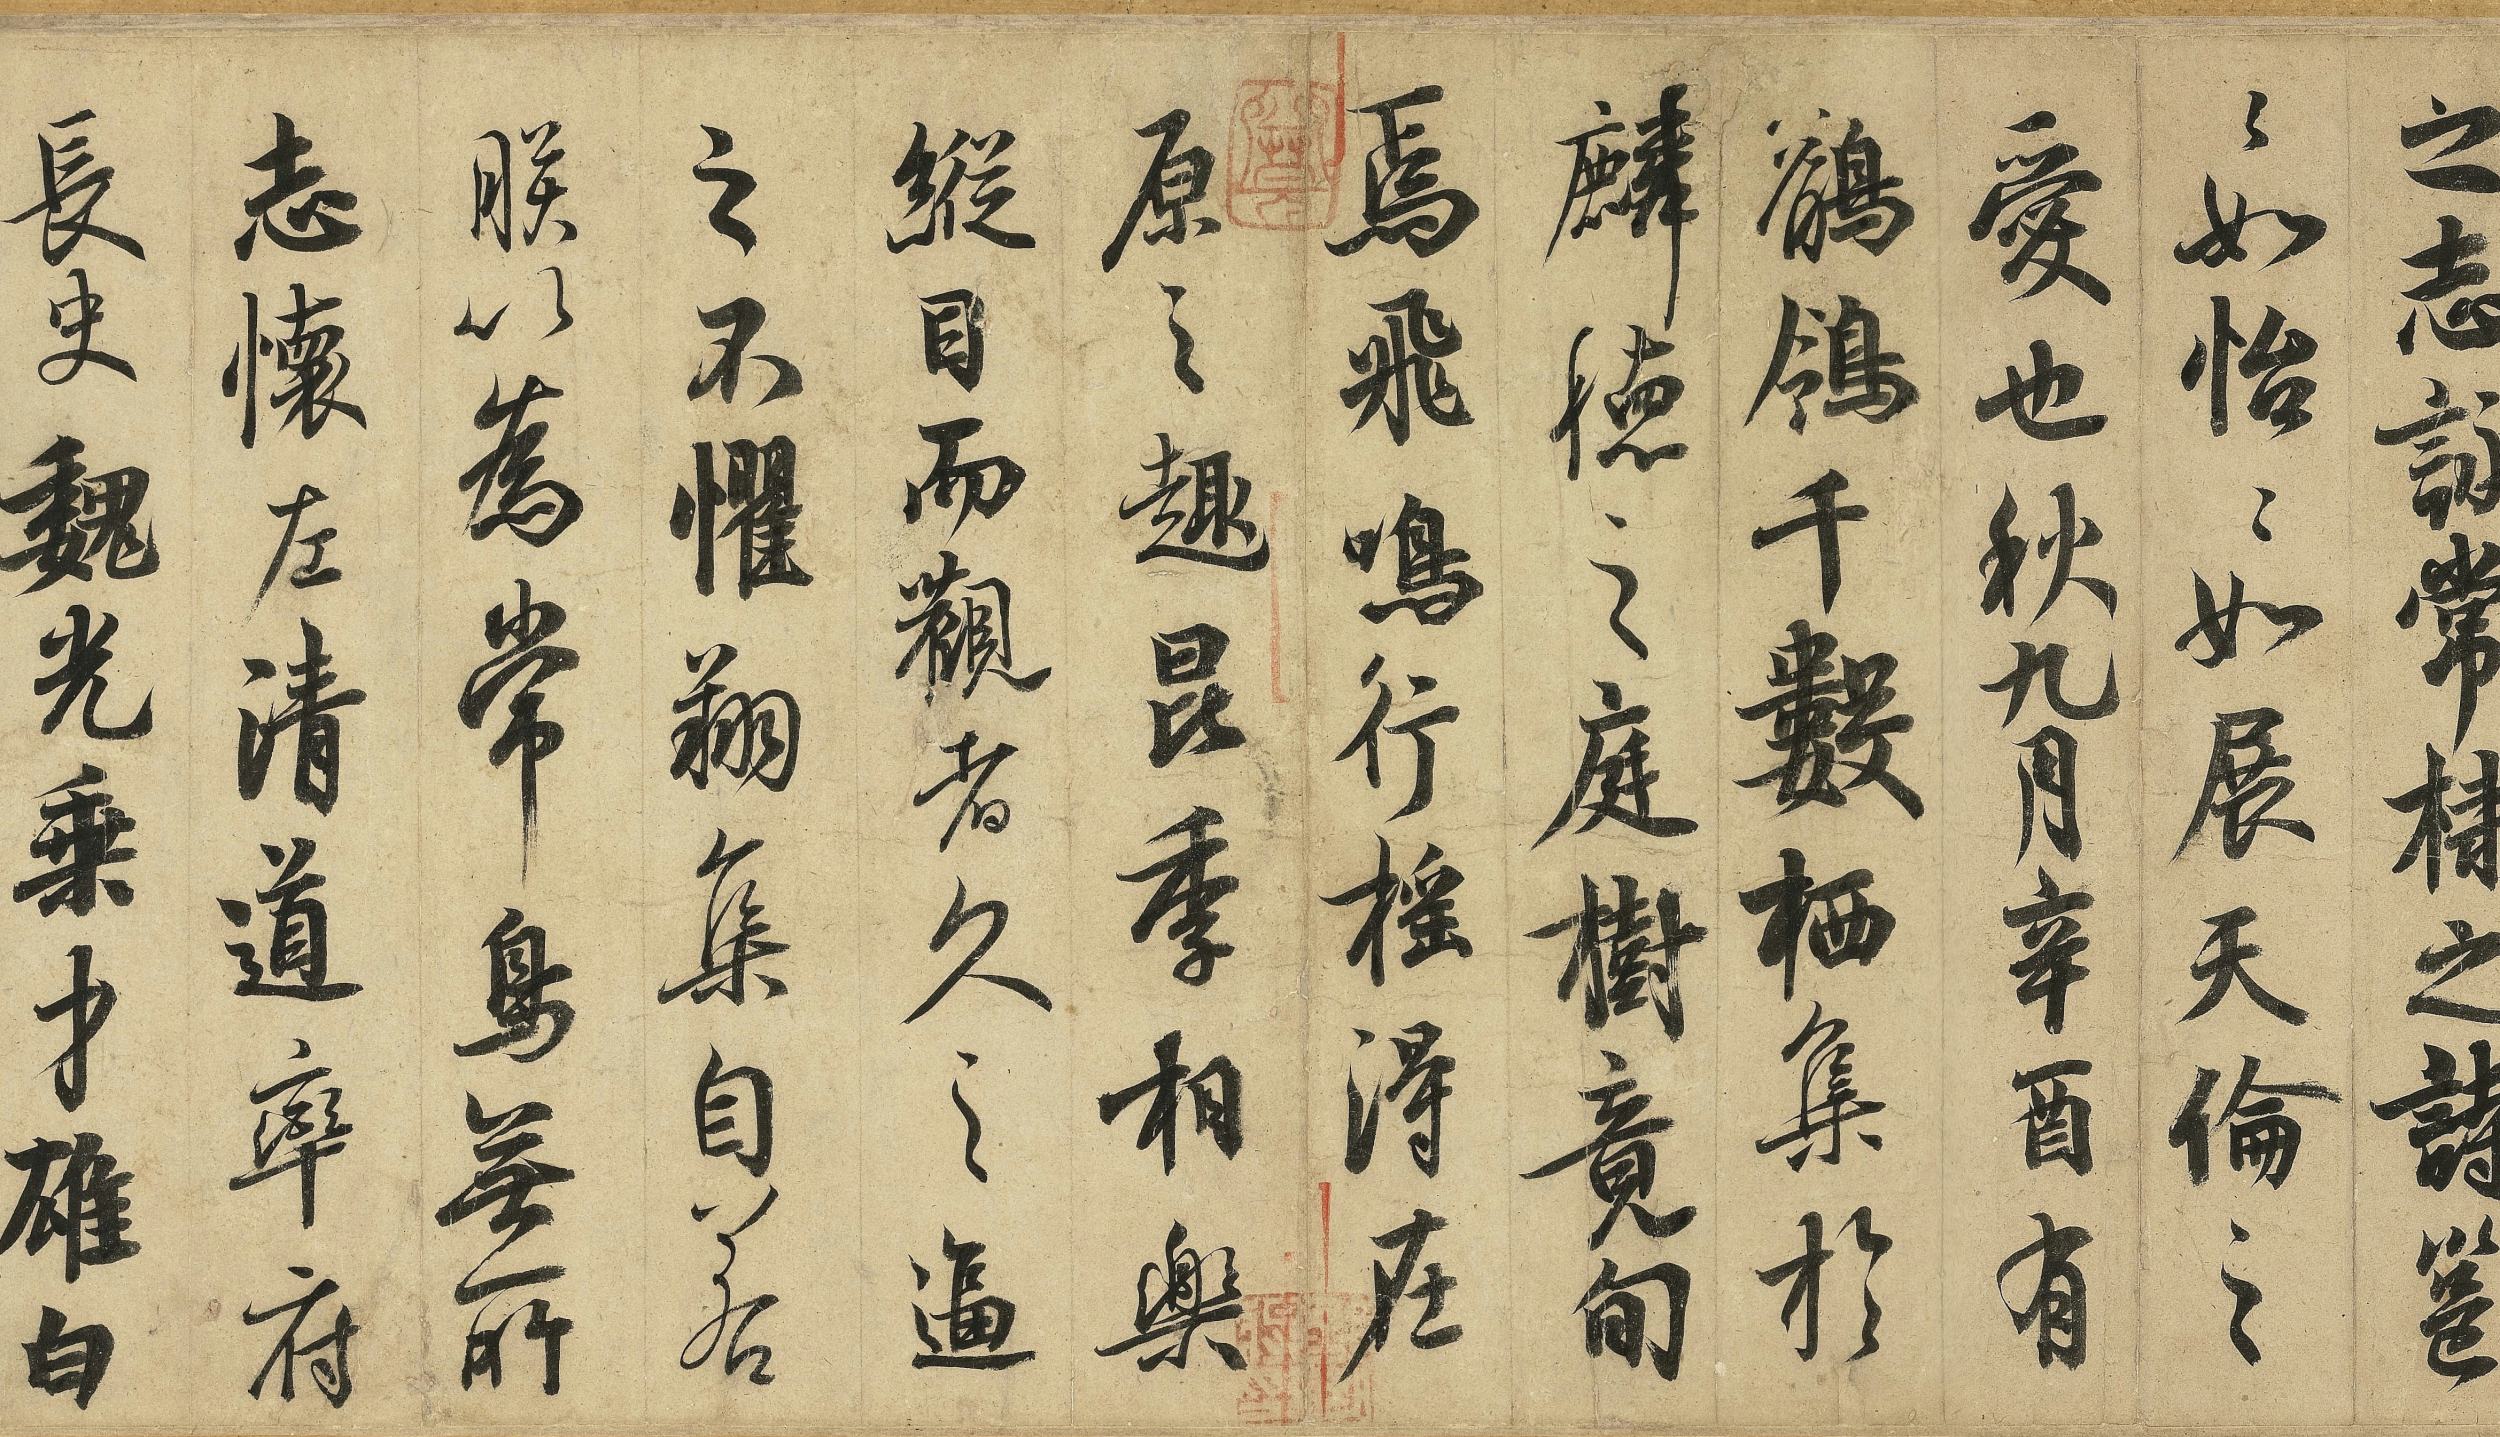 之志詠常棣之詩邕
〻如怡〻如展天倫之
愛也秋九月辛酉有
鶺鴒千數栖集於
麟德之庭樹竟旬
焉飛鳴行搖得在
原之趣昆季相樂
縱目而觀者久之逼
之不懼翔集自若
朕以為常鳥無所
志懷左清道率府
長史魏光乘才雄白